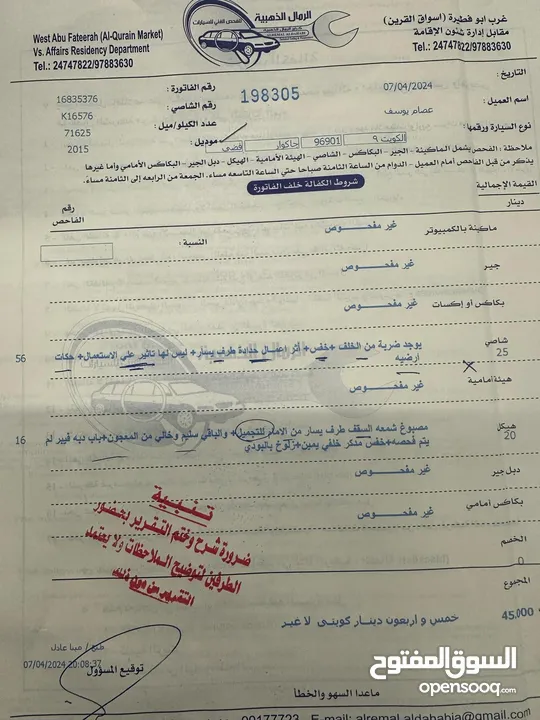 الرمال الذهبية
للفحص الفني للسيارات
غرب ابو فطيرة (أسواق القرين)
مقابل إدارة شئون الإقامة
Tel.: 24747822/97883630
West Abu Fateerah (Al-Qurain Market)
Vs. Affairs Residency Department
Tel.: 24747822/97883630
التاريخ: 07/04/2024
رقم الفاتورة: 16835376
198305
اسم العميل: عصام يوسف
رقم الشاصي: K16576
عدد الكيلو/ميل: 71625
نوع السيارة ورقمها: الكويت ٩ 96901 جاكوار فضي
موديل: 2015
ملاحظة: الفحص يشمل الماكينة - الجير - البكاكس - الشاصي - الهيئة الأمامية - الهيكل - دبل الجير - البكاكس الأمامي وما غيرها
يذكر من قبل الفاحص امام العميل - الدوام من الساعة الثامنة صباحا حتى الساعة التاسعه مساء. الجمعة من الرابعه إلى الثامنة مساء.
شروط الكفالة خلف الفاتورة
القيمة الإجمالية
دينار
رقم الفاحص
ماكينة بالكمبيوتر غير مفحوص
النسبة:
جير غير مفحوص
بكاكس أو إكسات غير مفحوص
شاصي
25 يوجد ضربة من الخلف + خفس + أثر إعمال حدادة طرف يسار + ليس لها تاثير علي الاستعمال + حكات 56
أرضيه
هيئة أمامية غير مفحوص
هيكل
20 مصبوغ شمعه السقف طرف يسار من الامام للتجميل + والباقي سليم وخالي من المعجون + باب دبه فيبر لم 16
يتم فحصه + خفس مذكر خلفي يمين + زلوخ بالبودي
دبل جير غير مفحوص
بكاكس أمامي غير مفحوص
تنبية
ضرورة شرح وختم التقرير بحضور
الطرفين لتوضيح الملاحظات ولا يعتمد
التقرير من دون ختم
الخصم
0
المجموع
45.000 خمس و اربعون دينار كويتى لا غير
مينا عادل
07/04/2024 20:08:37
توقيع المسؤول
ماعدا السهو والخطأ
99177723 E-mail: alremal.aldahabia@gmail.com
السوق المفتوح
opensooq.com